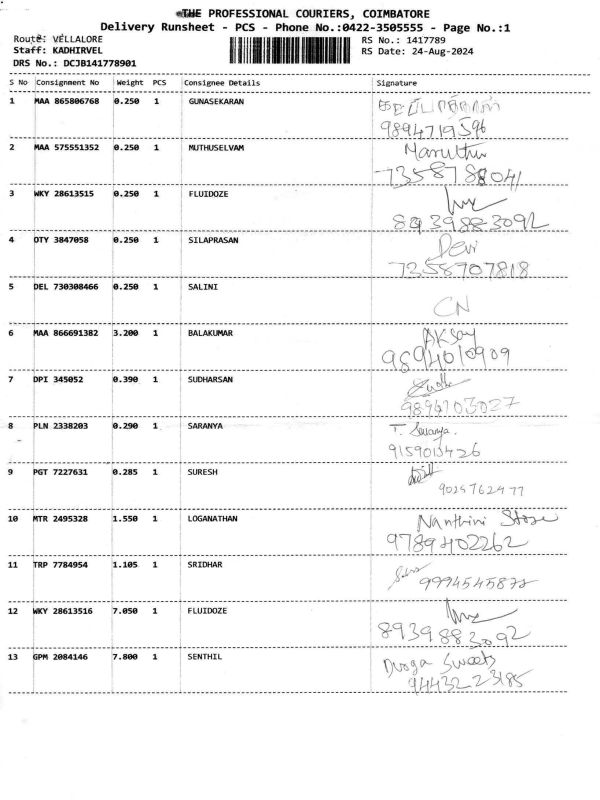 THE PROFESSIONAL COURIERS, COIMBATORE
Delivery Runsheet - PCS - Phone No.:0422-3505555 - Page No.:1
Route: VELLALORE RS No.: 1417789
Staff: KADHIRVEL RS Date: 24-Aug-2024
DRS No.: DCJB141778901
S No Consignment No Weight PCS Consignee Details Signature
1 MAA 865806768 0.250 1 GUNASEKARAN
9894719596
2 MAA 575551352 0.250 1 MUTHUSELVAM Maruthu
3 WKY 28613515 0.250 1 FLUIDOZE
4 OTY 3847058 0.250 1 SILAPRASAN Devi
7258707818
5 DEL 730308466 0.250 1 SALINI CN
6 MAA 866691382 3.200 1 BALAKUMAR AKSay
9894010909
7 DPI 345052 0.390 1 SUDHARSAN
9894703027
8 PLN 2338203 0.290 1 SARANYA T. Saranya.
9159013426
9 PGT 7227631 0.285 1 SURESH
9025762477
10 MTR 2495328 1.550 1 LOGANATHAN Nanthini Store
9789402262
11 TRP 7784954 1.105 1 SRIDHAR
9994545872
12 WKY 28613516 7.050 1 FLUIDOZE
8939883092
13 GPM 2084146 7.800 1 SENTHIL Durga Sweets
9443223185